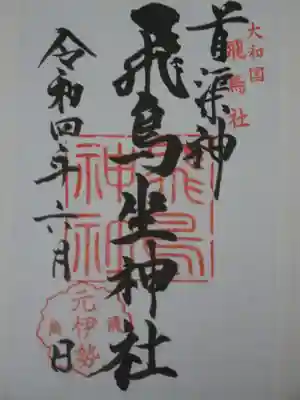 大和国
飛鳥社
首渠神
飛鳥坐神社
飛鳥
神社
令和四年六月 日
元伊勢